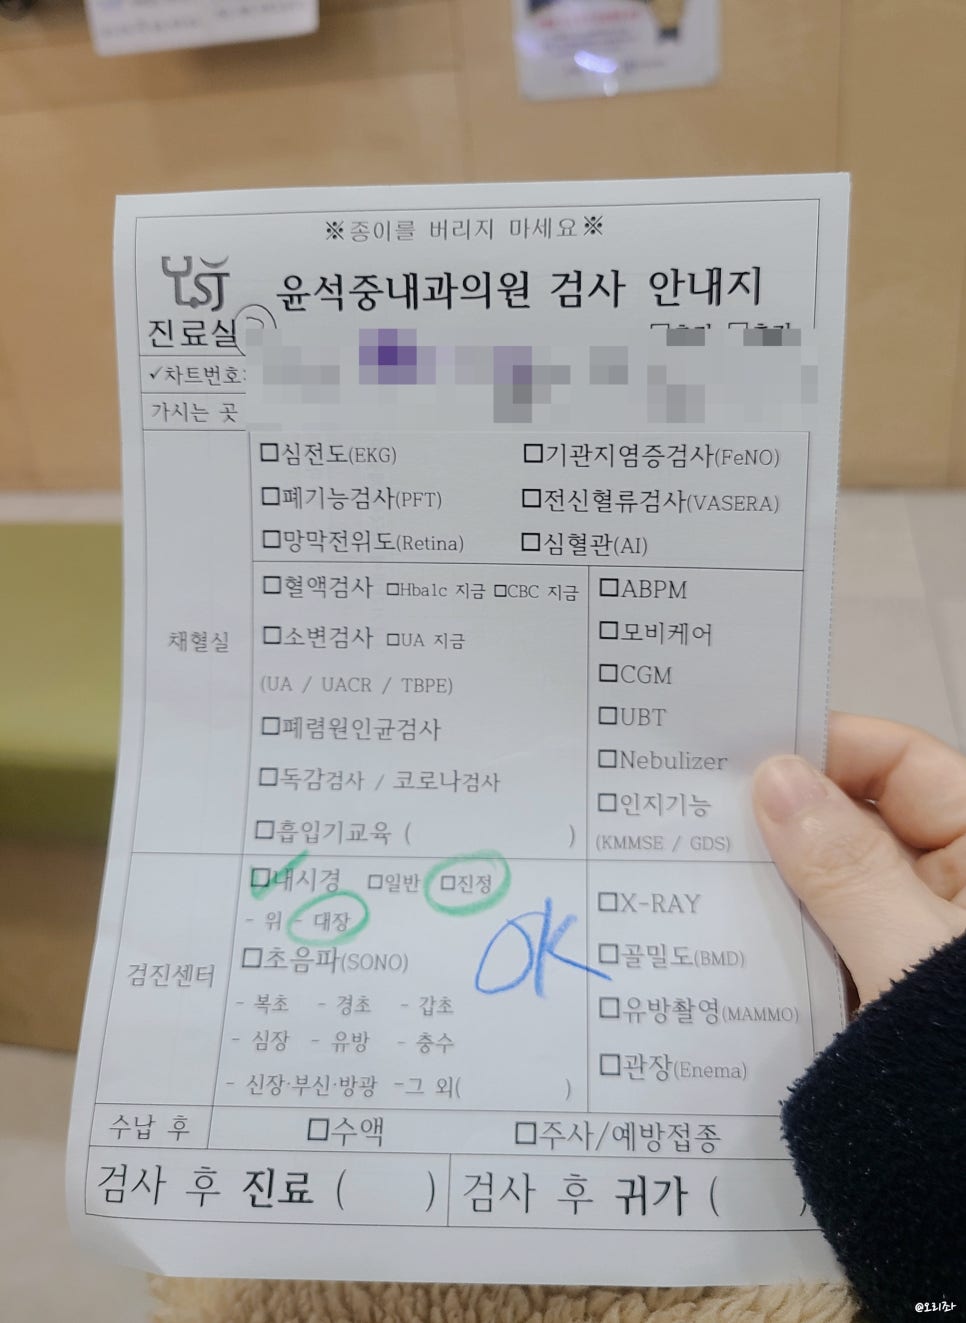 ※종이를 버리지 마세요※
YSJ
윤석중내과의원 검사 안내지
진료실
✓차트번호:
가시는 곳
□심전도(EKG) □기관지염증검사(FeNO)
□폐기능검사(PFT) □전신혈류검사(VASERA)
□망막전위도(Retina) □심혈관(AI)
채혈실
□혈액검사 □Hba1c 지금 □CBC 지금
□소변검사 □UA 지금
(UA / UACR / TBPE)
□폐렴원인균검사
□독감검사 / 코로나검사
□흡입기교육 ( )
□ABPM
□모비케어
□CGM
□UBT
□Nebulizer
□인지기능
(KMMSE / GDS)
검진센터
□내시경 □일반 □진정
- 위 - 대장
OK
□초음파(SONO)
- 복초 - 경초 - 갑초
- 심장 - 유방 - 충수
- 신장·부신·방광 -그 외( )
□X-RAY
□골밀도(BMD)
□유방촬영(MAMMO)
□관장(Enema)
수납 후 □수액 □주사/예방접종
검사 후 진료 ( ) 검사 후 귀가 ( )
@오리좌